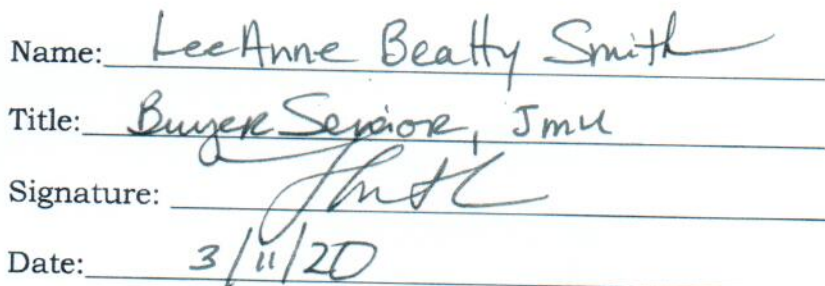 Name: LeeAnne Beatty Smith
Title: Buyer Senior, JMU
Signature: Smith
Date: 3/11/20